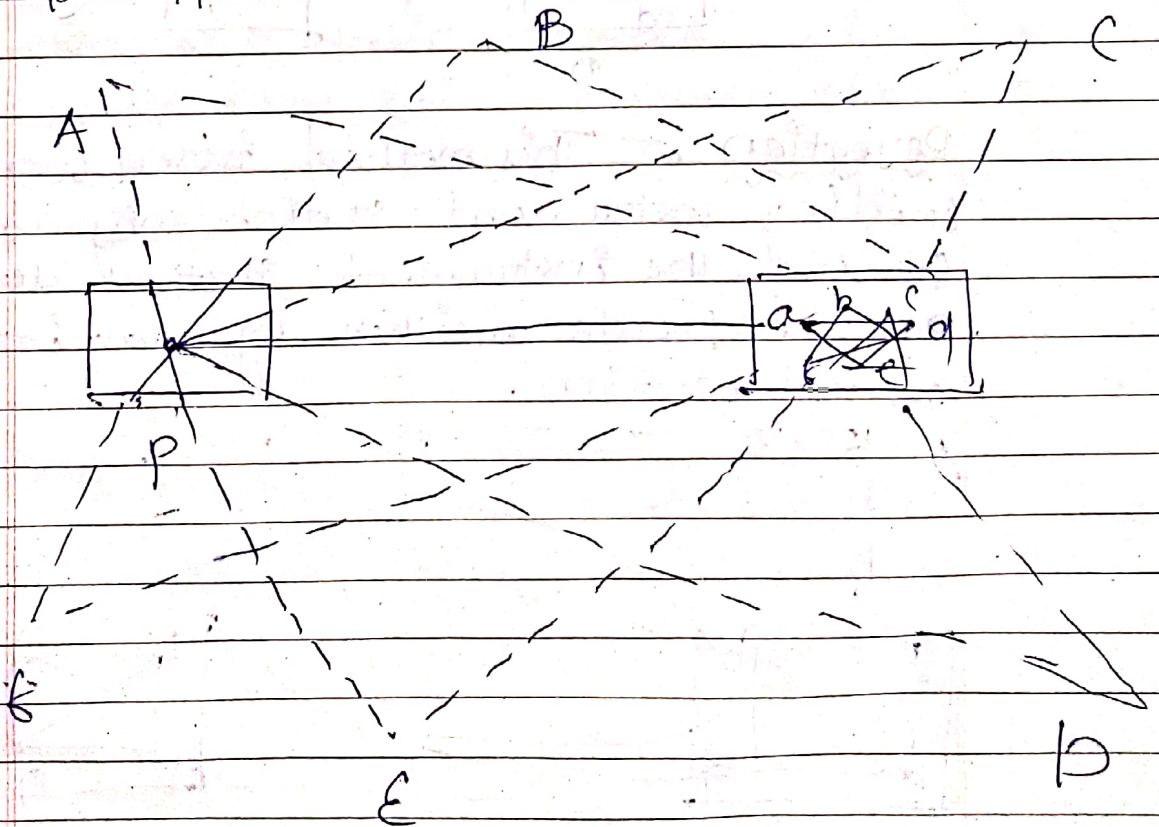 B
C
A
a
b
c
d
e
P
E
D